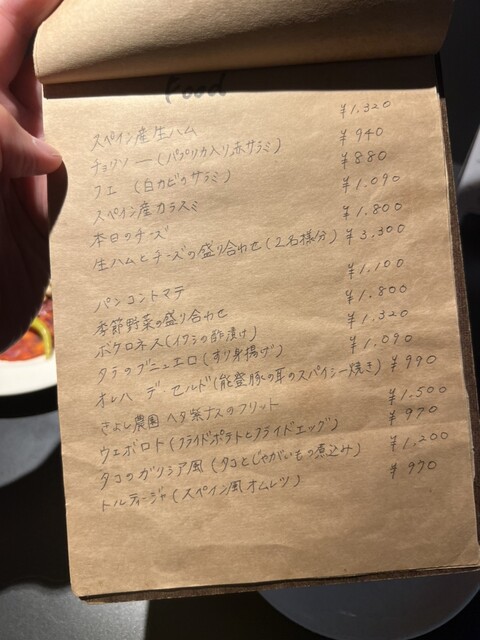 Food
スペイン産生ハム ¥1,320
チョリソー(パプリカ入り赤サラミ) ¥940
クエ (白カビのサラミ) ¥880
スペイン産カラスミ ¥1,090
本日のチーズ ¥1,800
生ハムとチーズの盛り合わせ(2名様分) ¥3,300
パンコントマテ ¥1,100
季節野菜の盛り合わせ ¥1,800
ボケロネス(イワシの酢漬け) ¥1,320
タラのブニュエロ(すり身揚げ) ¥1,090
オレハ デ・セルド(能登豚の耳のスパイシー焼き) ¥990
きよし農園 ヘタ紫ナスのフリット ¥1,500
ウエボロト(フライドポテトとフライドエッグ) ¥970
タコのガリシア風(タコとじゃがいもの煮込み) ¥1,200
トルティージャ(スペイン風オムレツ) ¥970